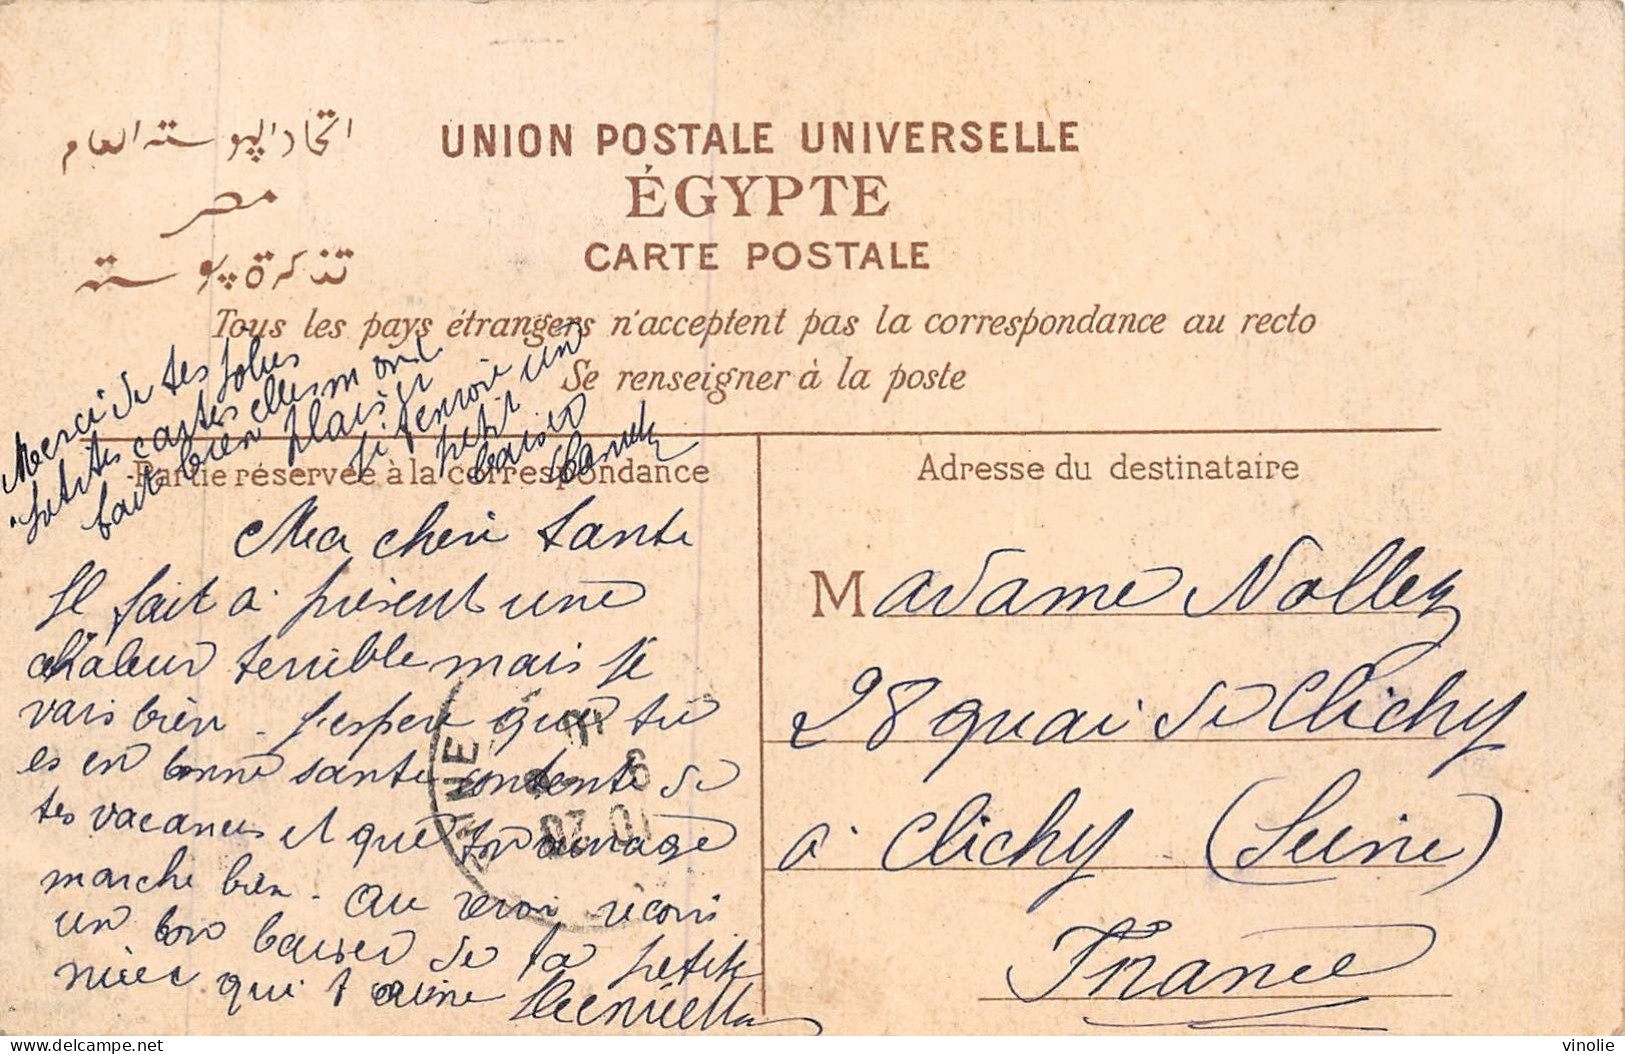 اتحاد البوسته العام
مصر
تذكرة بوسته
UNION POSTALE UNIVERSELLE
ÉGYPTE
CARTE POSTALE
Tous les pays étrangers n'acceptent pas la correspondance au recto
Se renseigner à la poste
Merci de tes jolies
petites cartes
fait bien elles m'ont
plaisir
je t'envoie un
petit
baiser
Partie réservée à la correspondance
Ma cheri tante
Il fait a présent une
chaleur terrible mais je
vais bien. J'espere que tu
es en bonne sante contente de
tes vacances et que ton ouvrage
marche bien. Au revoir recois
un bon baiser de ta petite
niece qui t'aime Henriette
Adresse du destinataire
Madame Nollez
28 quai de Clichy
à Clichy (Seine)
France
INE
10 20
vinolie
delcampe.net